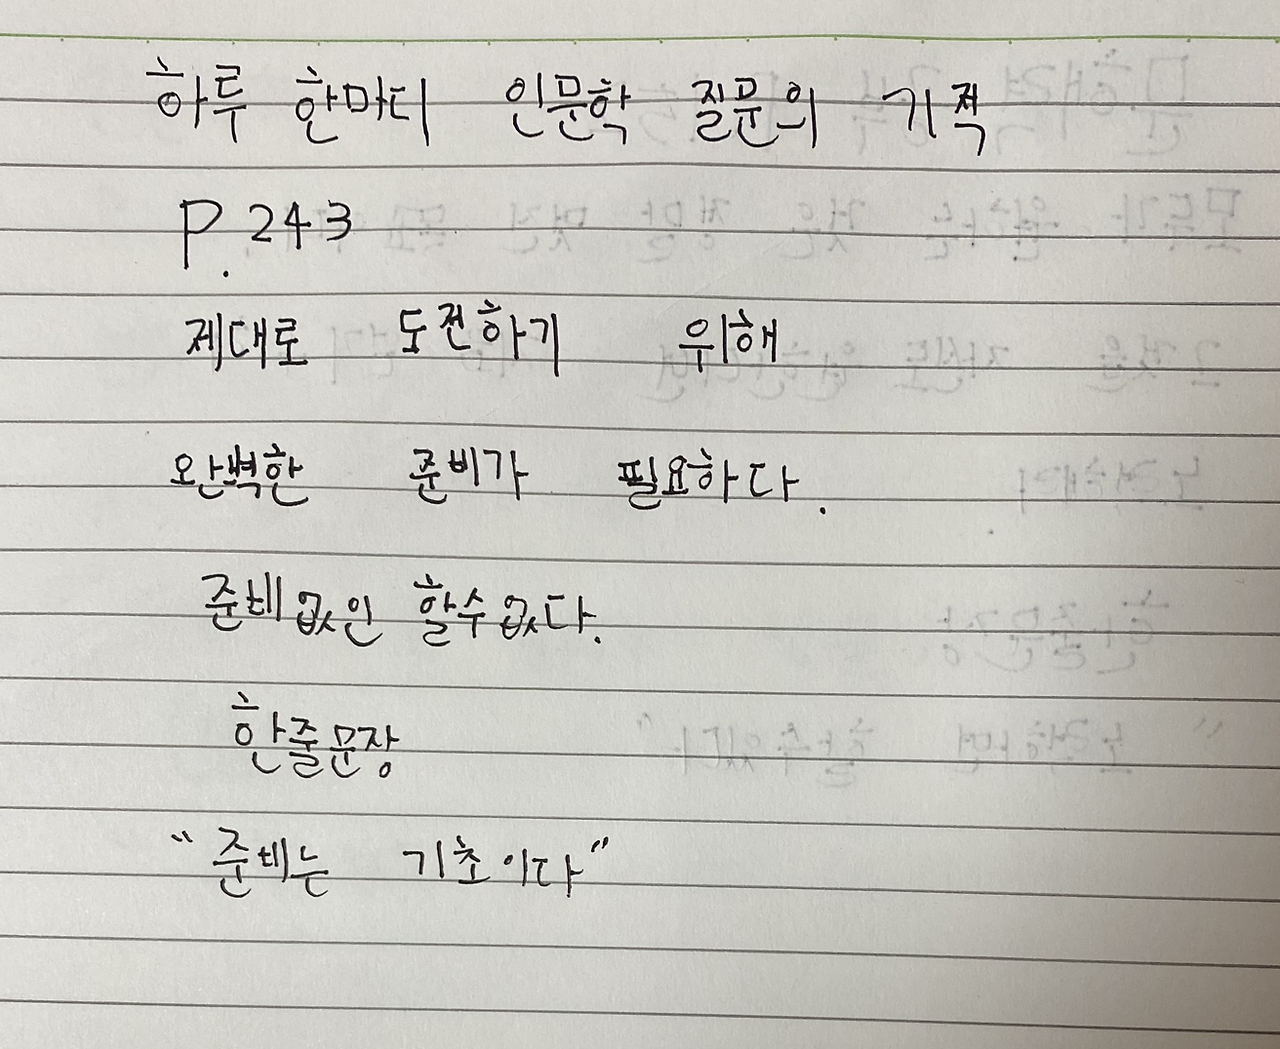 하루 한마디 인문학 질문의 기적
P. 243
제대로 도전하기 위해
완벽한 준비가 필요하다.
준비없인 할수없다.
한줄문장
"준비는 기초이다"